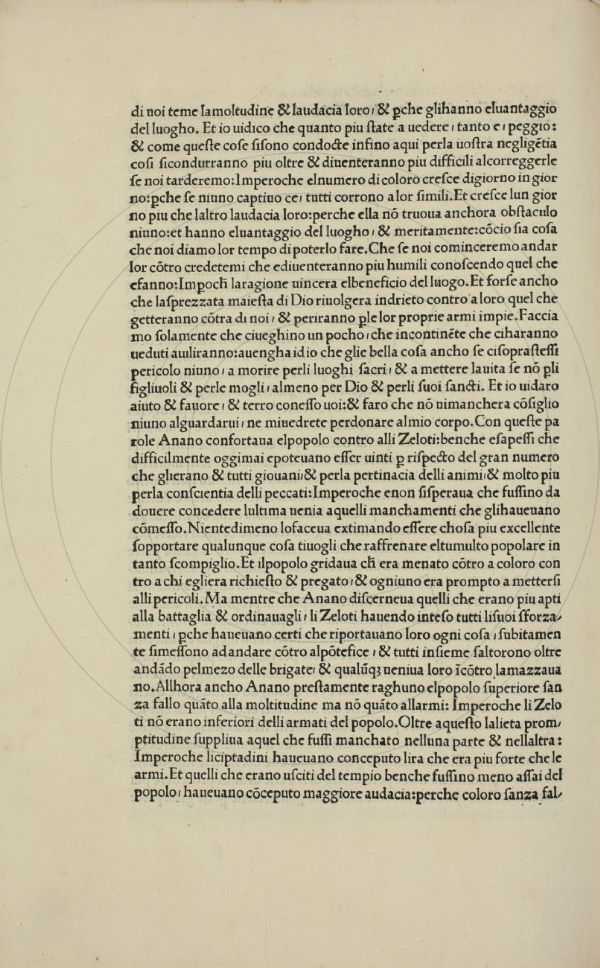 di noi teme lamoltudine & laudacia loro, & ꝑche glihanno eluantaggio
del luogho. Et io uidico che quanto piu ſtate a uedere, tanto e, peggio:
& come queſte coſe ſiſono condocte inſino aqui perla uoſtra negligẽtia
coſi ſicondurranno piu oltre & diuenteranno piu difficili alcorreggerle
ſe noi tarderemo: Imperoche elnumero di coloro creſce digiorno in gior
no: ꝑche ſe niuno captiuo ce, tutti corrono a lor ſimili. Et creſce lun gior
no piu che laltro laudacia loro: perche ella nõ truoua anchora obſtaculo
niuno: et hanno eluantaggio del luogho, & meritamente: cõcio ſia coſa
che noi diamo lor tempo di poterlo fare. Che ſe noi cominceremo andar
lor cõtro credetemi che ediuenteranno piu humili conoſcendo quel che
efanno: Impocħ laragione uincera elbeneficio del luogo. Et forſe ancho
che laſprezzata maieſta di Dio riuolgera indrieto contro a loro quel che
getteranno cõtra di noi, & periranno ꝑle lor proprie armi impie. Faccia
mo ſolamente che ciueghino un pocho, che incontinẽte che ciharanno
ueduti auuliranno: auengha idio che glie bella coſa ancho ſe ciſopraſteſſi
pericolo niuno, a morire perli luoghi ſacri, & a mettere lauita ſe nõ ꝑli
figliuoli & perle mogli, almeno per Dio & perli ſuoi ſancti. Et io uidaro
aiuto & fauore, & terro coneſſo uoi: & faro che nõ uimanchera cõſiglio
niuno alguardarui, ne miuedrete perdonare almio corpo. Con queſte pa
role Anano confortaua elpopolo contro alli Zeloti: benche eſapeſſi che
difficilmente oggimai epoteuano eſſer uinti ꝑ riſpecto del gran numero
che glierano & tutti giouani, & perla pertinacia delli animi, & molto piu
perla conſcientia delli peccati: Imperoche enon ſiſperaua che fuſſino da
douere concedere lultima uenia aquelli manchamenti che glihaueuano
cõmeſſo. Nientedimeno lofaceua extimando eſſere choſa piu excellente
ſopportare qualunque coſa tiuogli che raffrenare eltumulto popolare in
tanto ſcompiglio. Et ilpopolo gridaua cħ era menato cõtro a coloro con
tro a chi egliera richieſto & pregato, & ogniuno era prompto a metterſi
alli pericoli. Ma mentre che Anano diſcerneua quelli che erano piu apti
alla battaglia & ordinauagli, li Zeloti hauendo inteſo tutti liſuoi sforza-
menti, ꝑche haueuano certi che riportauano loro ogni coſa, ſubitamen
te ſimeſſono ad andare cõtro alpõtefice, & tutti inſieme ſaltorono oltre
andãdo pelmezo delle brigate, & qualũqꝫ ueniua loro ĩcõtro lamazzaua
no. Allhora ancho Anano preſtamente raghuno elpopolo ſuperiore ſan
za fallo quãto alla moltitudine ma nõ quãto allarmi: Imperoche li Zelo
ti nõ erano inferiori delli armati del popolo. Oltre aqueſto lalieta prom-
ptitudine ſuppliua aquel che fuſſi manchato nelluna parte & nellaltra:
Imperoche liciptadini haueuano conceputo lira che era piu forte che le
armi. Et quelli che erano uſciti del tempio benche fuſſino meno aſſai del
popolo, haueuano cõceputo maggiore audacia: perche coloro ſanza fal-